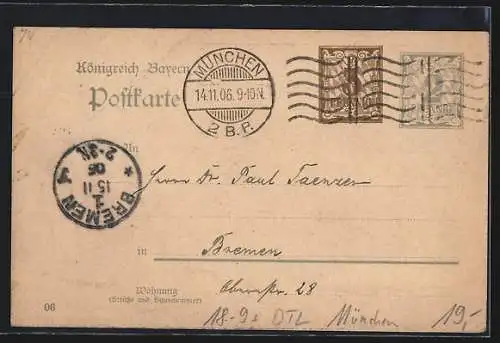 Königreich Bayern
Postkarte
MÜNCHEN
14.11.06. 9-10 N.
2 B.P.
BREMEN
1
15 11
06
2-3N
An
Herrn Dr. Paul Taenzer
in Bremen
Wohnung
(Straße und Hausnummer)
Obernstr. 28
06
18-9a DTL München 19,-